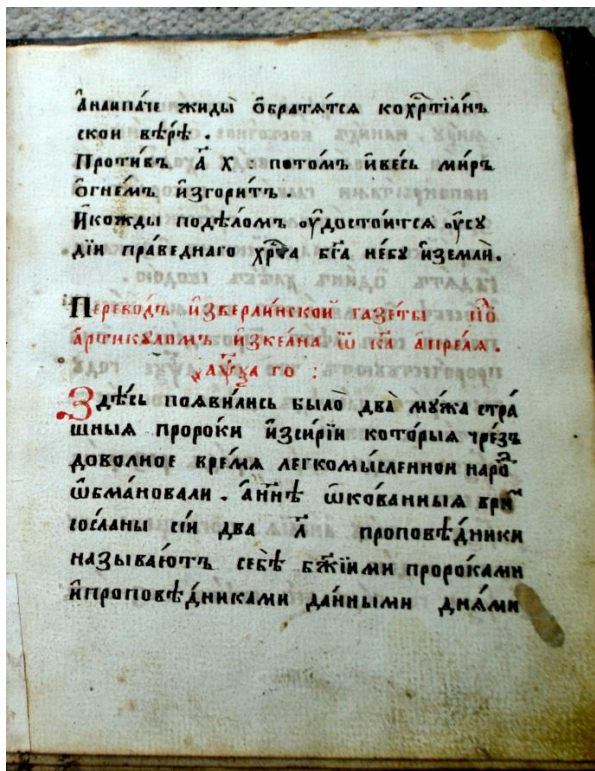 А҆наипаче жиды̀ ѻ҆братѧ́тсѧ кохр҃тїа́н
скои вѣ́рѣ .
Проти́въ а҃ х : пото́мъ и҆ве́сь ми́ръ
ѻ҆гне́мъ и҆згори́тъ .
И҆ко́жды подѣ́ломъ ᲂу҆достои́тсѧ ᲂу҆су
дїи̑ пра́веднаго хр҃та бг҃а не́бу и҆земли̑ .
Перево́дъ и҆зберли́нской газе́ты по
а҆ртикуломъ и҆зке́лна ѿ к҃а а҆преля .
го :
Здѣ́сь поѧви́лись было̀ два̀ му́жа стра́
шныѧ проро́ки и҆зсирі́и кото́рыѧ чре́зъ
дово́лное вре́мѧ легкомы́сленнои наро
ѡ҆бмановали . а҆нн҃ѣ ѡ҆ко́ванныѧ
со́сланы сїѝ два̀ л҃ проповѣ́дники
называ́ютъ себѐ бж҃їими проро́ками
и҆проповѣ́дниками да́нными днѧ́ми